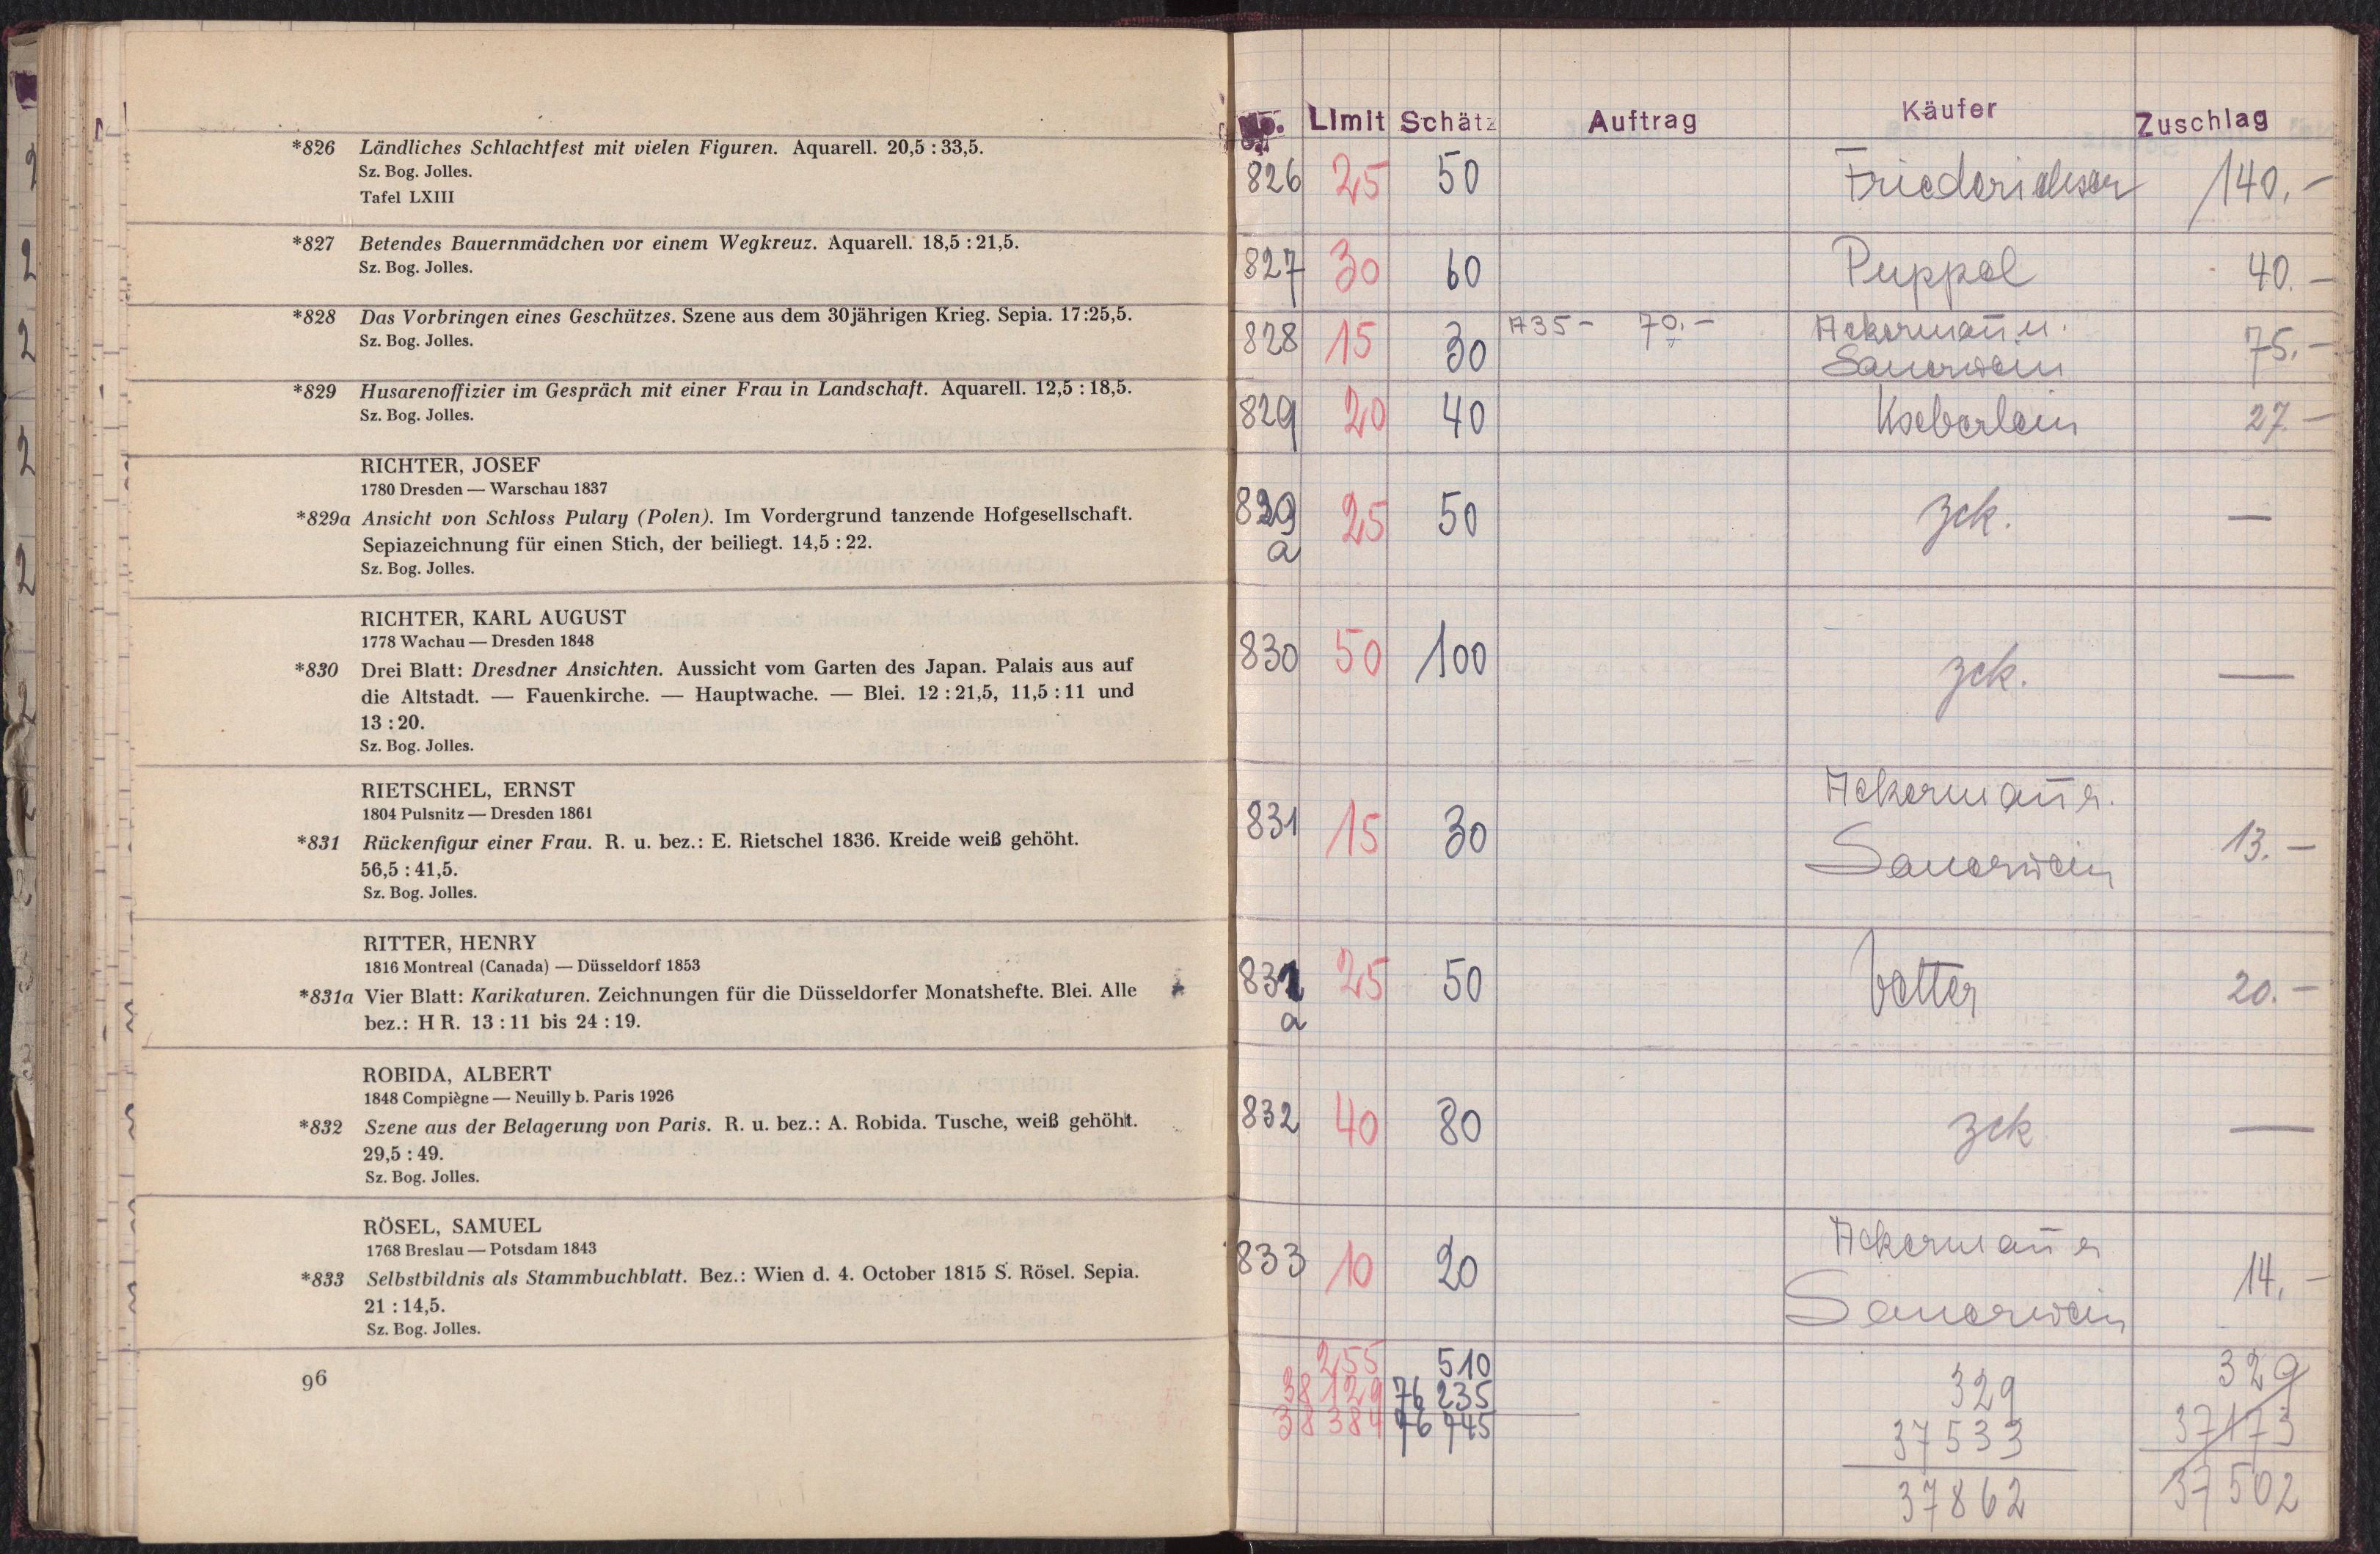 *826 Ländliches Schlachtfest mit vielen Figuren. Aquarell. 20,5 : 33,5.
Sz. Bog. Jolles.
Tafel LXIII
*827 Betendes Bauernmädchen vor einem Wegkreuz. Aquarell. 18,5 : 21,5.
Sz. Bog. Jolles.
*828 Das Vorbringen eines Geschützes. Szene aus dem 30jährigen Krieg. Sepia. 17:25,5.
Sz. Bog. Jolles.
*829 Husarenoffizier im Gespräch mit einer Frau in Landschaft. Aquarell. 12,5 : 18,5.
Sz. Bog. Jolles.
RICHTER, JOSEF
1780 Dresden — Warschau 1837
*829a Ansicht von Schloss Pulary (Polen). Im Vordergrund tanzende Hofgesellschaft.
Sepiazeichnung für einen Stich, der beiliegt. 14,5 : 22.
Sz. Bog. Jolles.
RICHTER, KARL AUGUST
1778 Wachau — Dresden 1848
*830 Drei Blatt: Dresdner Ansichten. Aussicht vom Garten des Japan. Palais aus auf
die Altstadt. — Fauenkirche. — Hauptwache. — Blei. 12 : 21,5, 11,5 : 11 und
13 : 20.
Sz. Bog. Jolles.
RIETSCHEL, ERNST
1804 Pulsnitz — Dresden 1861
*831 Rückenfigur einer Frau. R. u. bez.: E. Rietschel 1836. Kreide weiß gehöht.
56,5 : 41,5.
Sz. Bog. Jolles.
RITTER, HENRY
1816 Montreal (Canada) — Düsseldorf 1853
*831a Vier Blatt: Karikaturen. Zeichnungen für die Düsseldorfer Monatshefte. Blei. Alle
bez.: H R. 13 : 11 bis 24 : 19.
ROBIDA, ALBERT
1848 Compiègne — Neuilly b. Paris 1926
*832 Szene aus der Belagerung von Paris. R. u. bez.: A. Robida. Tusche, weiß gehöht.
29,5 : 49.
Sz. Bog. Jolles.
RÖSEL, SAMUEL
1768 Breslau — Potsdam 1843
*833 Selbstbildnis als Stammbuchblatt. Bez.: Wien d. 4. October 1815 S. Rösel. Sepia.
21 : 14,5.
Sz. Bog. Jolles.
96
No. Limit Schätz Auftrag Käufer Zuschlag
826 25 50 140.-
827 30 60 Puppel 40.-
828 15 30 A 35- 70.- Ackermann u.
Sauerwein 75.-
829 20 40 27.-
829 25 50 zck. —
a
830 50 100 zck. —
Ackermann u.
831 15 30 Sauerwein 13.-
831 25 50 Vetter 20.-
a
832 40 80 zck —
Ackermann u
833 10 20 Sauerwein 14.-
255 510 329 329
38 129 76 235 37533 37173
38 384 76 745 37862 37502